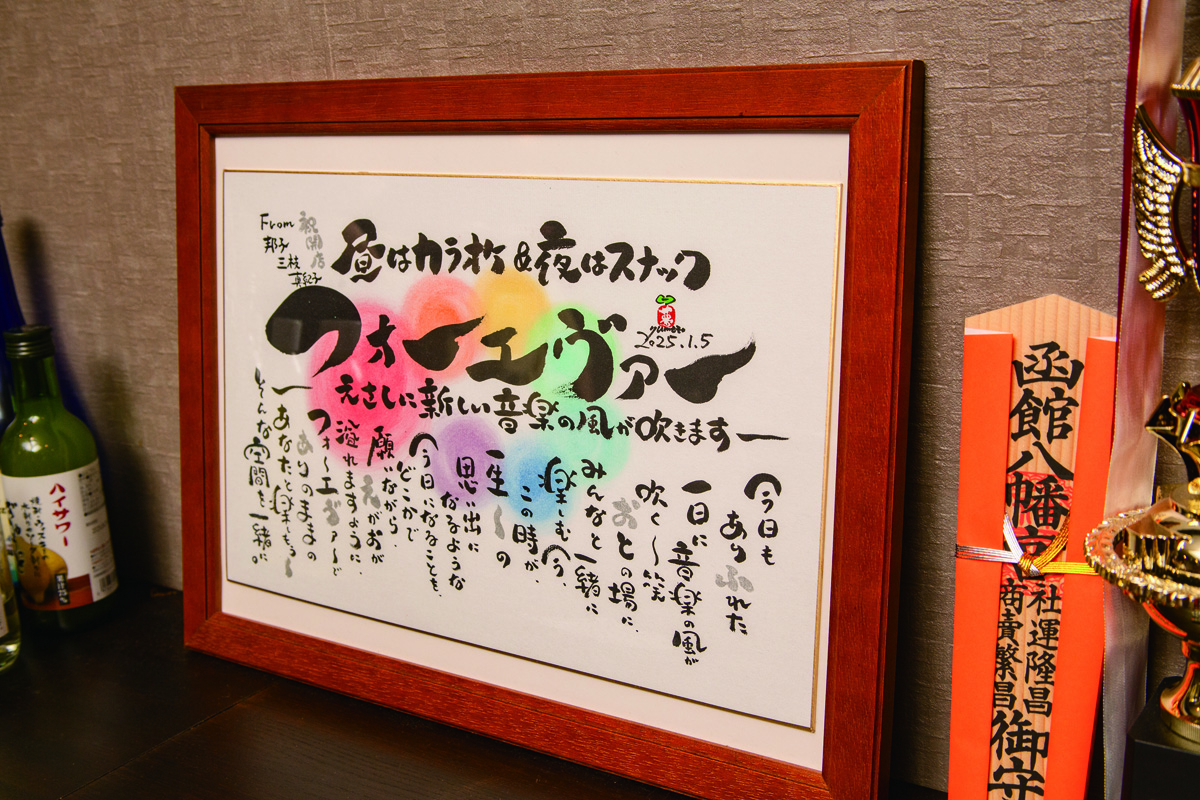 From
邦子
三枝
真紀子
祝開店
昼はカラオケ&夜はスナック
フォーエヴァー
yumeto
2025.1.5
えさしに新しい音楽の風が吹きますー
今日も
ありふれた
一日に音楽の風が
吹く〜笑
おとの場に、
みんなと一緒に
楽しむ今、
この時が、
一生〜の
思い出に
なるような
今日になることを、
どこかで
願いながら、
えがおが
溢れますように、
フォ〜エヴァ〜で
ありのままの
ーあなたと楽しもう〜
そんな空間を一緒に。
ハイサワー
函館八幡宮
社運隆昌
商賣繁昌
御守